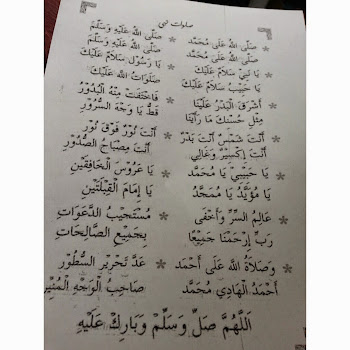 صلوات نبي
صَلَّى اللهُ عَلَى مُحَمَّد * صَلَّى اللهُ عَلَيْهِ وَسَلَّمَ
صَلَّى اللهُ عَلَى مُحَمَّد صَلَّى اللهُ عَلَيْهِ وَسَلَّمَ
يَا نَبِيْ سَلَامْ عَلَيْكَ * يَا رَسُوْل سَلَامْ عَلَيْكَ
يَا حَبِيْب سَلَامْ عَلَيْكَ صَلَوَاتُ اللهْ عَلَيْكَ
أَشْرَقَ الْبَدْرُ عَلَيْنَا * فَاخْتَفَتْ مِنْهُ الْبُدُوْرُ
مِثْلَ حُسْنِكْ مَا رَأَيْنَا قَطُّ يَا وَجْهَ السُّرُوْرِ
أَنْتَ شَمْسٌ أَنْتَ بَدْرٌ * أَنْتَ نُوْرٌ فَوْقَ نُوْرِ
أَنْتَ إِكْسِيْرٌ وَغَالِي أَنْتَ مِصْبَاحُ الصُّدُوْرِ
يَا حَبِيْبِيْ يَا مُحَمَّد * يَا عَرُوْسَ الْخَافِقَيْنِ
يَا مُؤَيَّدْ يَا مُمَجَّدْ يَا إِمَامَ الْقِبْلَتَيْنِ
عَالِمُ السِّرِّ وَأَخْفَى * مُسْتَجِيْبُ الدَّعَوَاتِ
رَبِّ إِرْحَمْنَا جَمِيْعًا بِجَمِيْعِ الصَّالِحَاتِ
وَصَلَاةُ اللهِ عَلَى أَحْمَد * عَدَّ تَحْرِيْرِ السُّطُوْرِ
أَحْمَدُ الْهَادِيْ مُحَمَّد صَاحِبُ الْوَجْهِ الْمُنِيْرِ
اَللَّهُمَّ صَلِّ وَسَلِّمْ وَبَارِكْ عَلَيْهِ